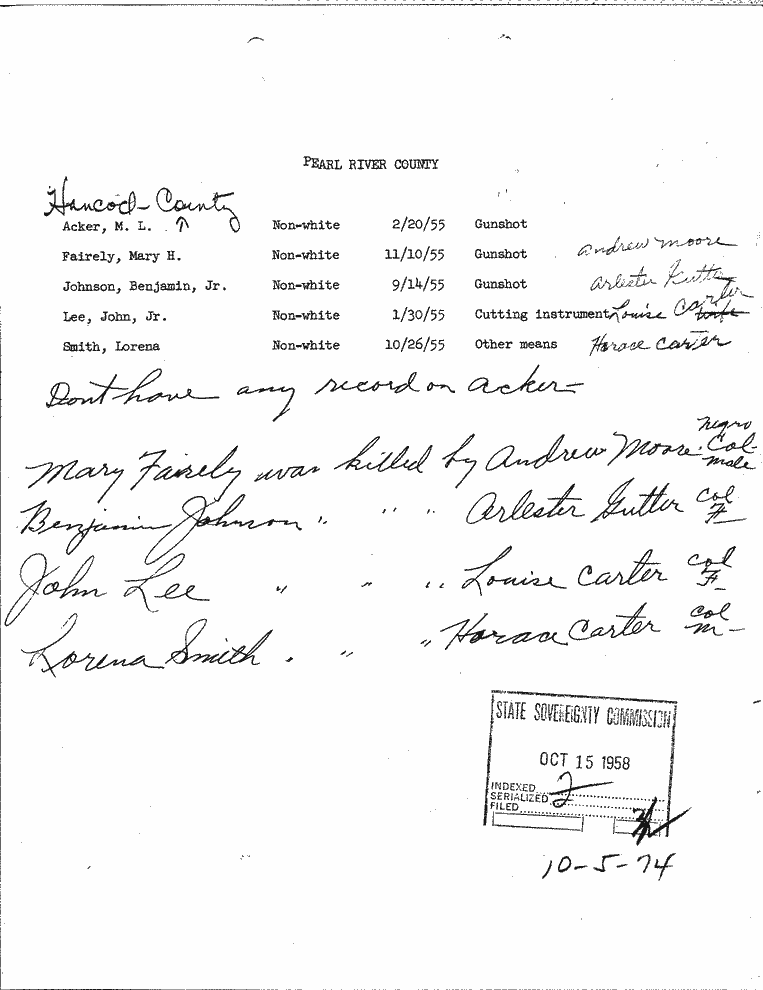 PEARL RIVER COUNTY
Hancock County
Acker, M. L. ↑ Non-white 2/20/55 Gunshot
Fairely, Mary H. Non-white 11/10/55 Gunshot Andrew Moore
Johnson, Benjamin, Jr. Non-white 9/14/55 Gunshot Arlester Gutter
Lee, John, Jr. Non-white 1/30/55 Cutting instrument Louise Carter
Smith, Lorena Non-white 10/26/55 Other means Horace Carter
Dont have any record on Acker—
Mary Fairely was killed by Andrew Moore. Negro Col. male
Benjamin Johnson " " " " Arlester Gutter Col F
John Lee " " " Louise Carter Col F
Lorena Smith " " " Horace Carter Col M—
STATE SOVEREIGNTY COMMISSION
OCT 15 1958
INDEXED
SERIALIZED 2
FILED
10-5-74